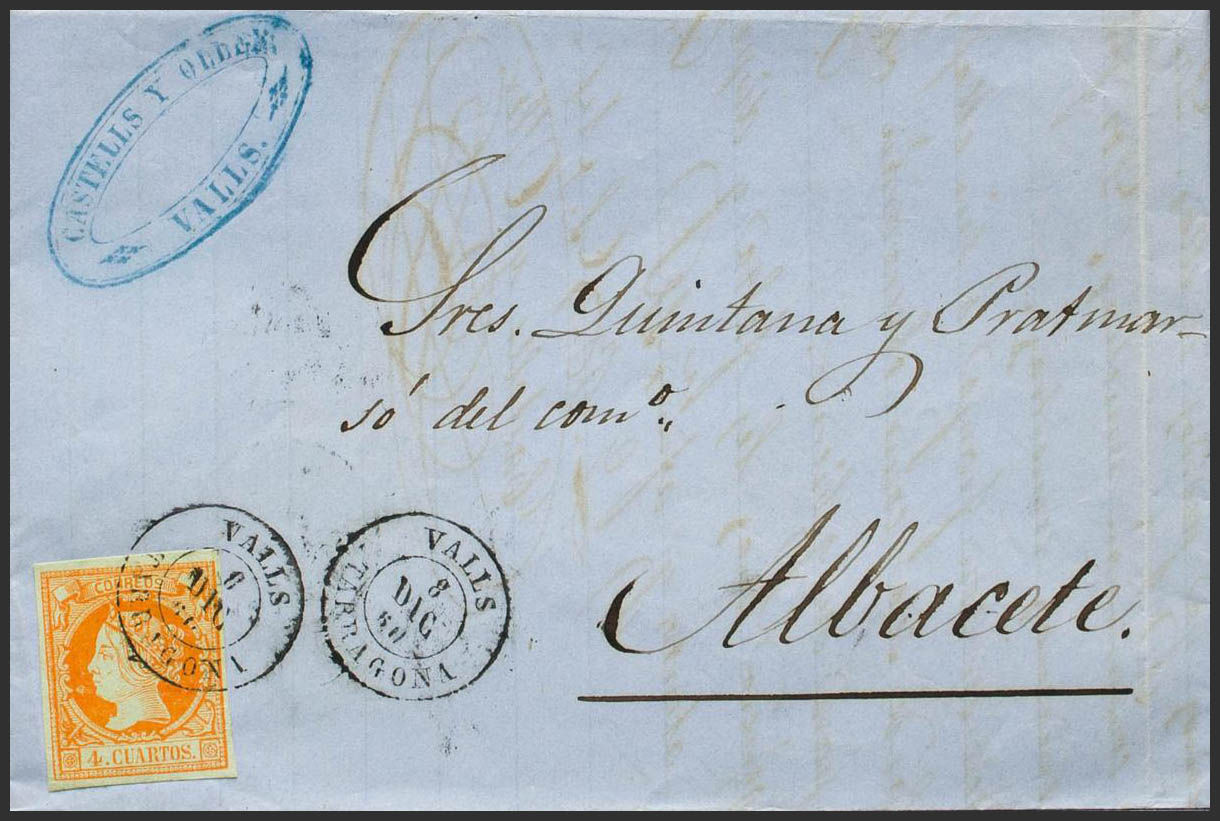 CASTELLS Y OLLER
VALLS.
Sres. Quintana y Pratmar-
só del com°.
Albacete.
VALLS
8
DIC
60
TARRAGONA
VALLS
DIC
CORREOS
4. CUARTOS.